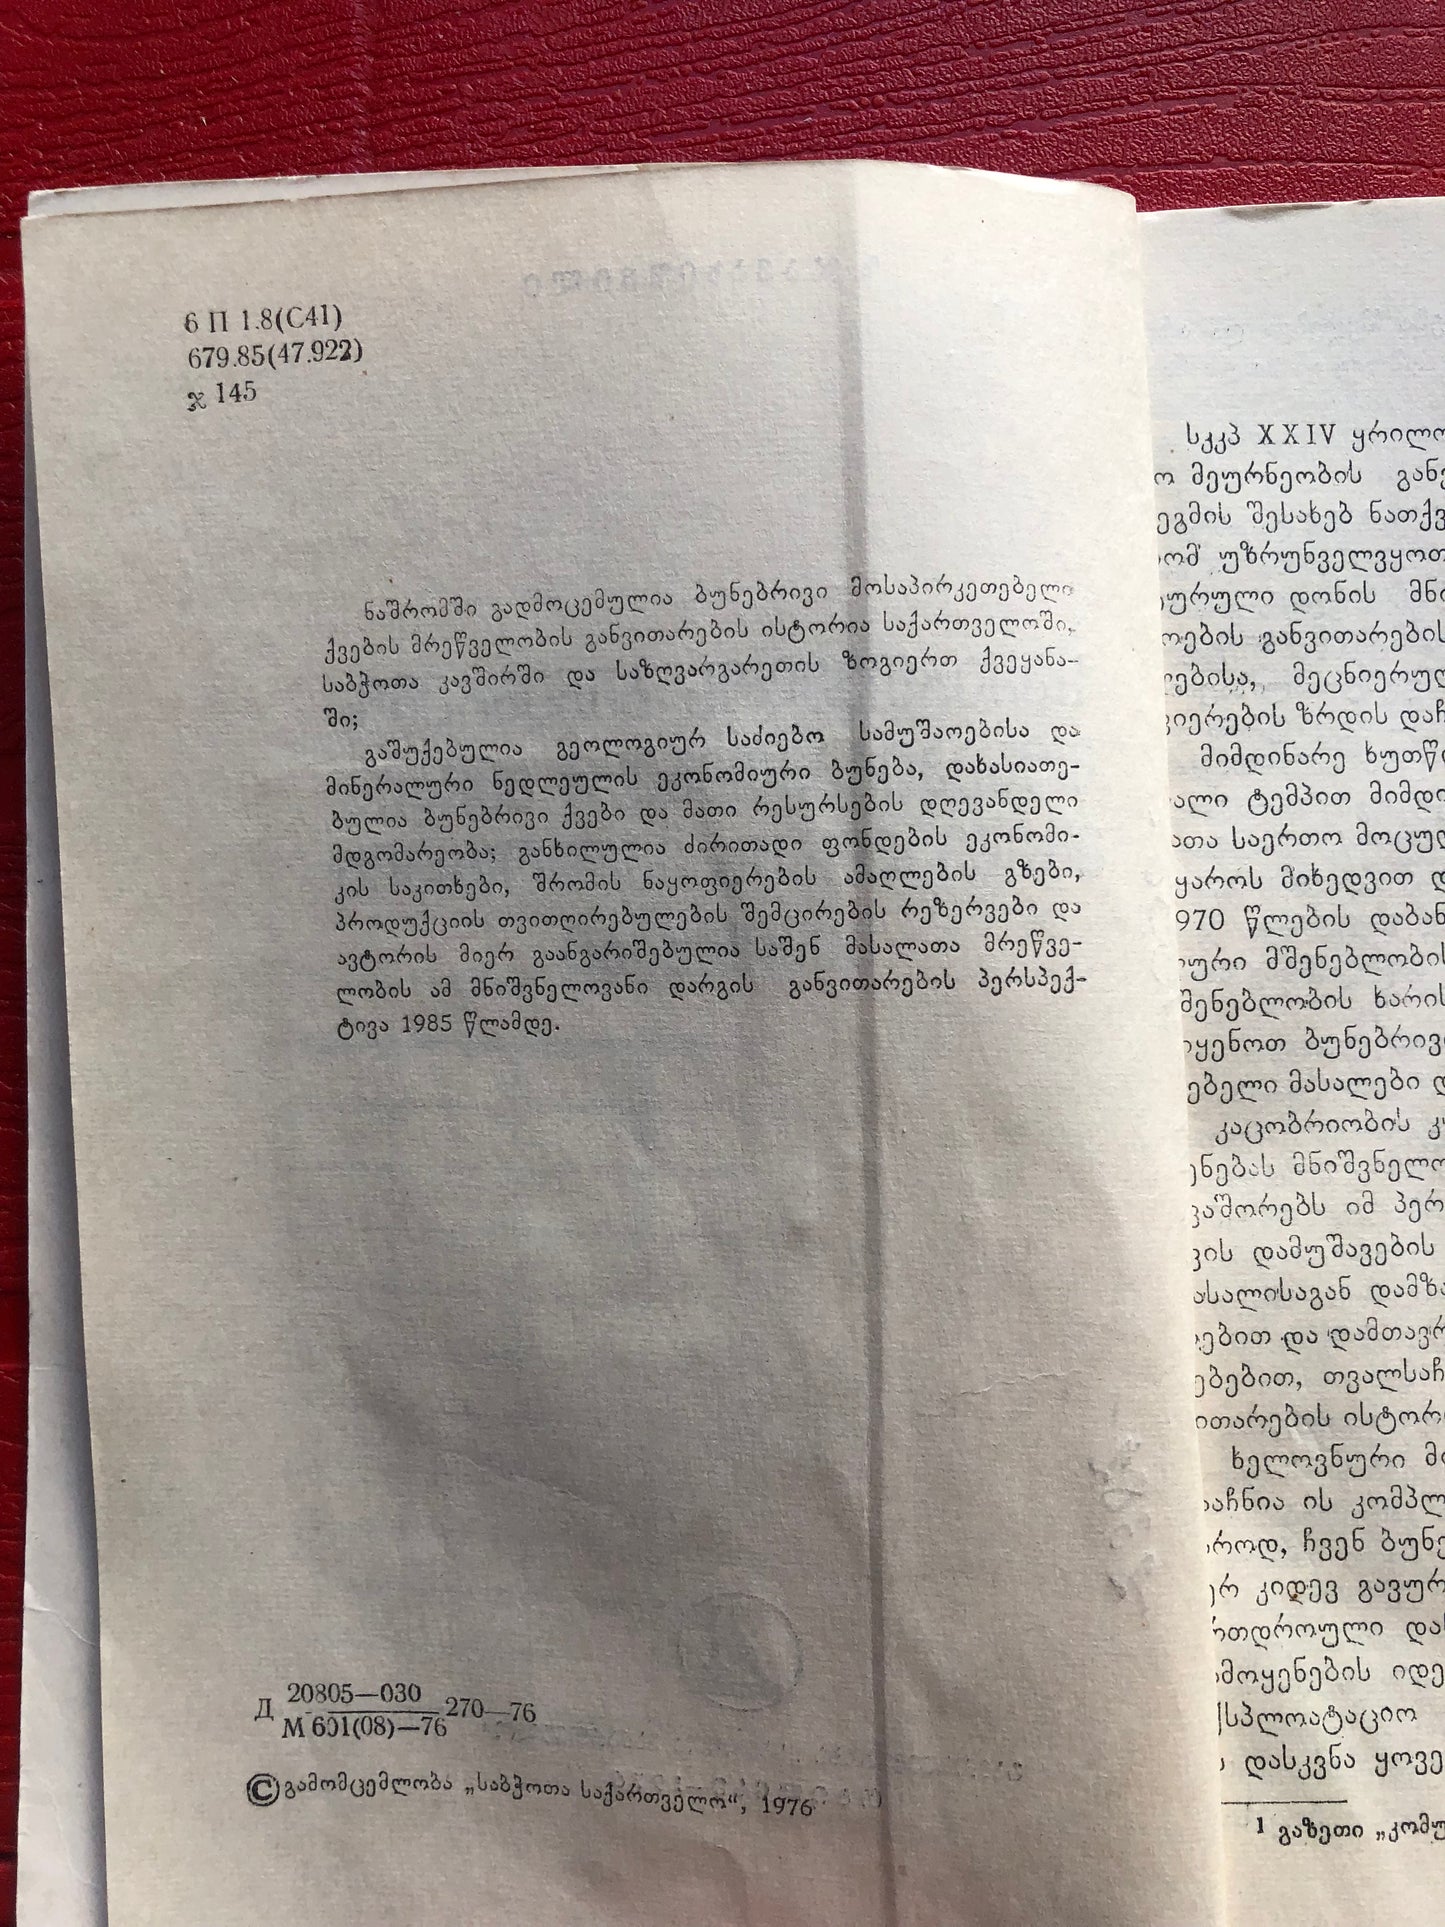 6 П 1.8(С41)
679.85(47.922)
ჯ 145
ნაშრომში გადმოცემულია ბუნებრივი მოსაპირკეთებელი
ქვების მრეწველობის განვითარების ისტორია საქართველოში,
საბჭოთა კავშირში და საზღვარგარეთის ზოგიერთ ქვეყანა-
ში;
გაშუქებულია გეოლოგიურ საძიებო სამუშაოებისა და
მინერალური ნედლეულის ეკონომიური ბუნება, დახასიათე-
ბულია ბუნებრივი ქვები და მათი რესურსების დღევანდელი
მდგომარეობა; განხილულია ძირითადი ფონდების ეკონომი-
კის საკითხები, შრომის ნაყოფიერების ამაღლების გზები,
პროდუქციის თვითღირებულების შემცირების რეზერვები და
ავტორის მიერ გაანგარიშებულია საშენ მასალათა მრეწვე-
ლობის ამ მნიშვნელოვანი დარგის განვითარების პერსპექ-
ტივა 1985 წლამდე.
Д 20805—030 270—76
М 601(08)—76
©გამომცემლობა „საბჭოთა საქართველო“, 1976
სკკპ XXIV
მეურნეობის
შესახებ
უზრუნველვყოთ
დონის
განვითარების
მეცნიერულ
ზრდის
მიმდინარე
ტემპით
საერთო
მიხედვით
წლების
მშენებლობის
ხარის
ბუნებრივ
მასალები
კაცობრიობის
მნიშვნელო
იმ პერ
დამუშავების
დამზა
და დამთავრ
თვალსაჩ
ისტორ
ხელოვნური
ის კომპლ
ჩვენ ბუნე
კიდევ გავურ
და
იდე
დასკვნა ყოვე
1 გაზეთი „კომუ